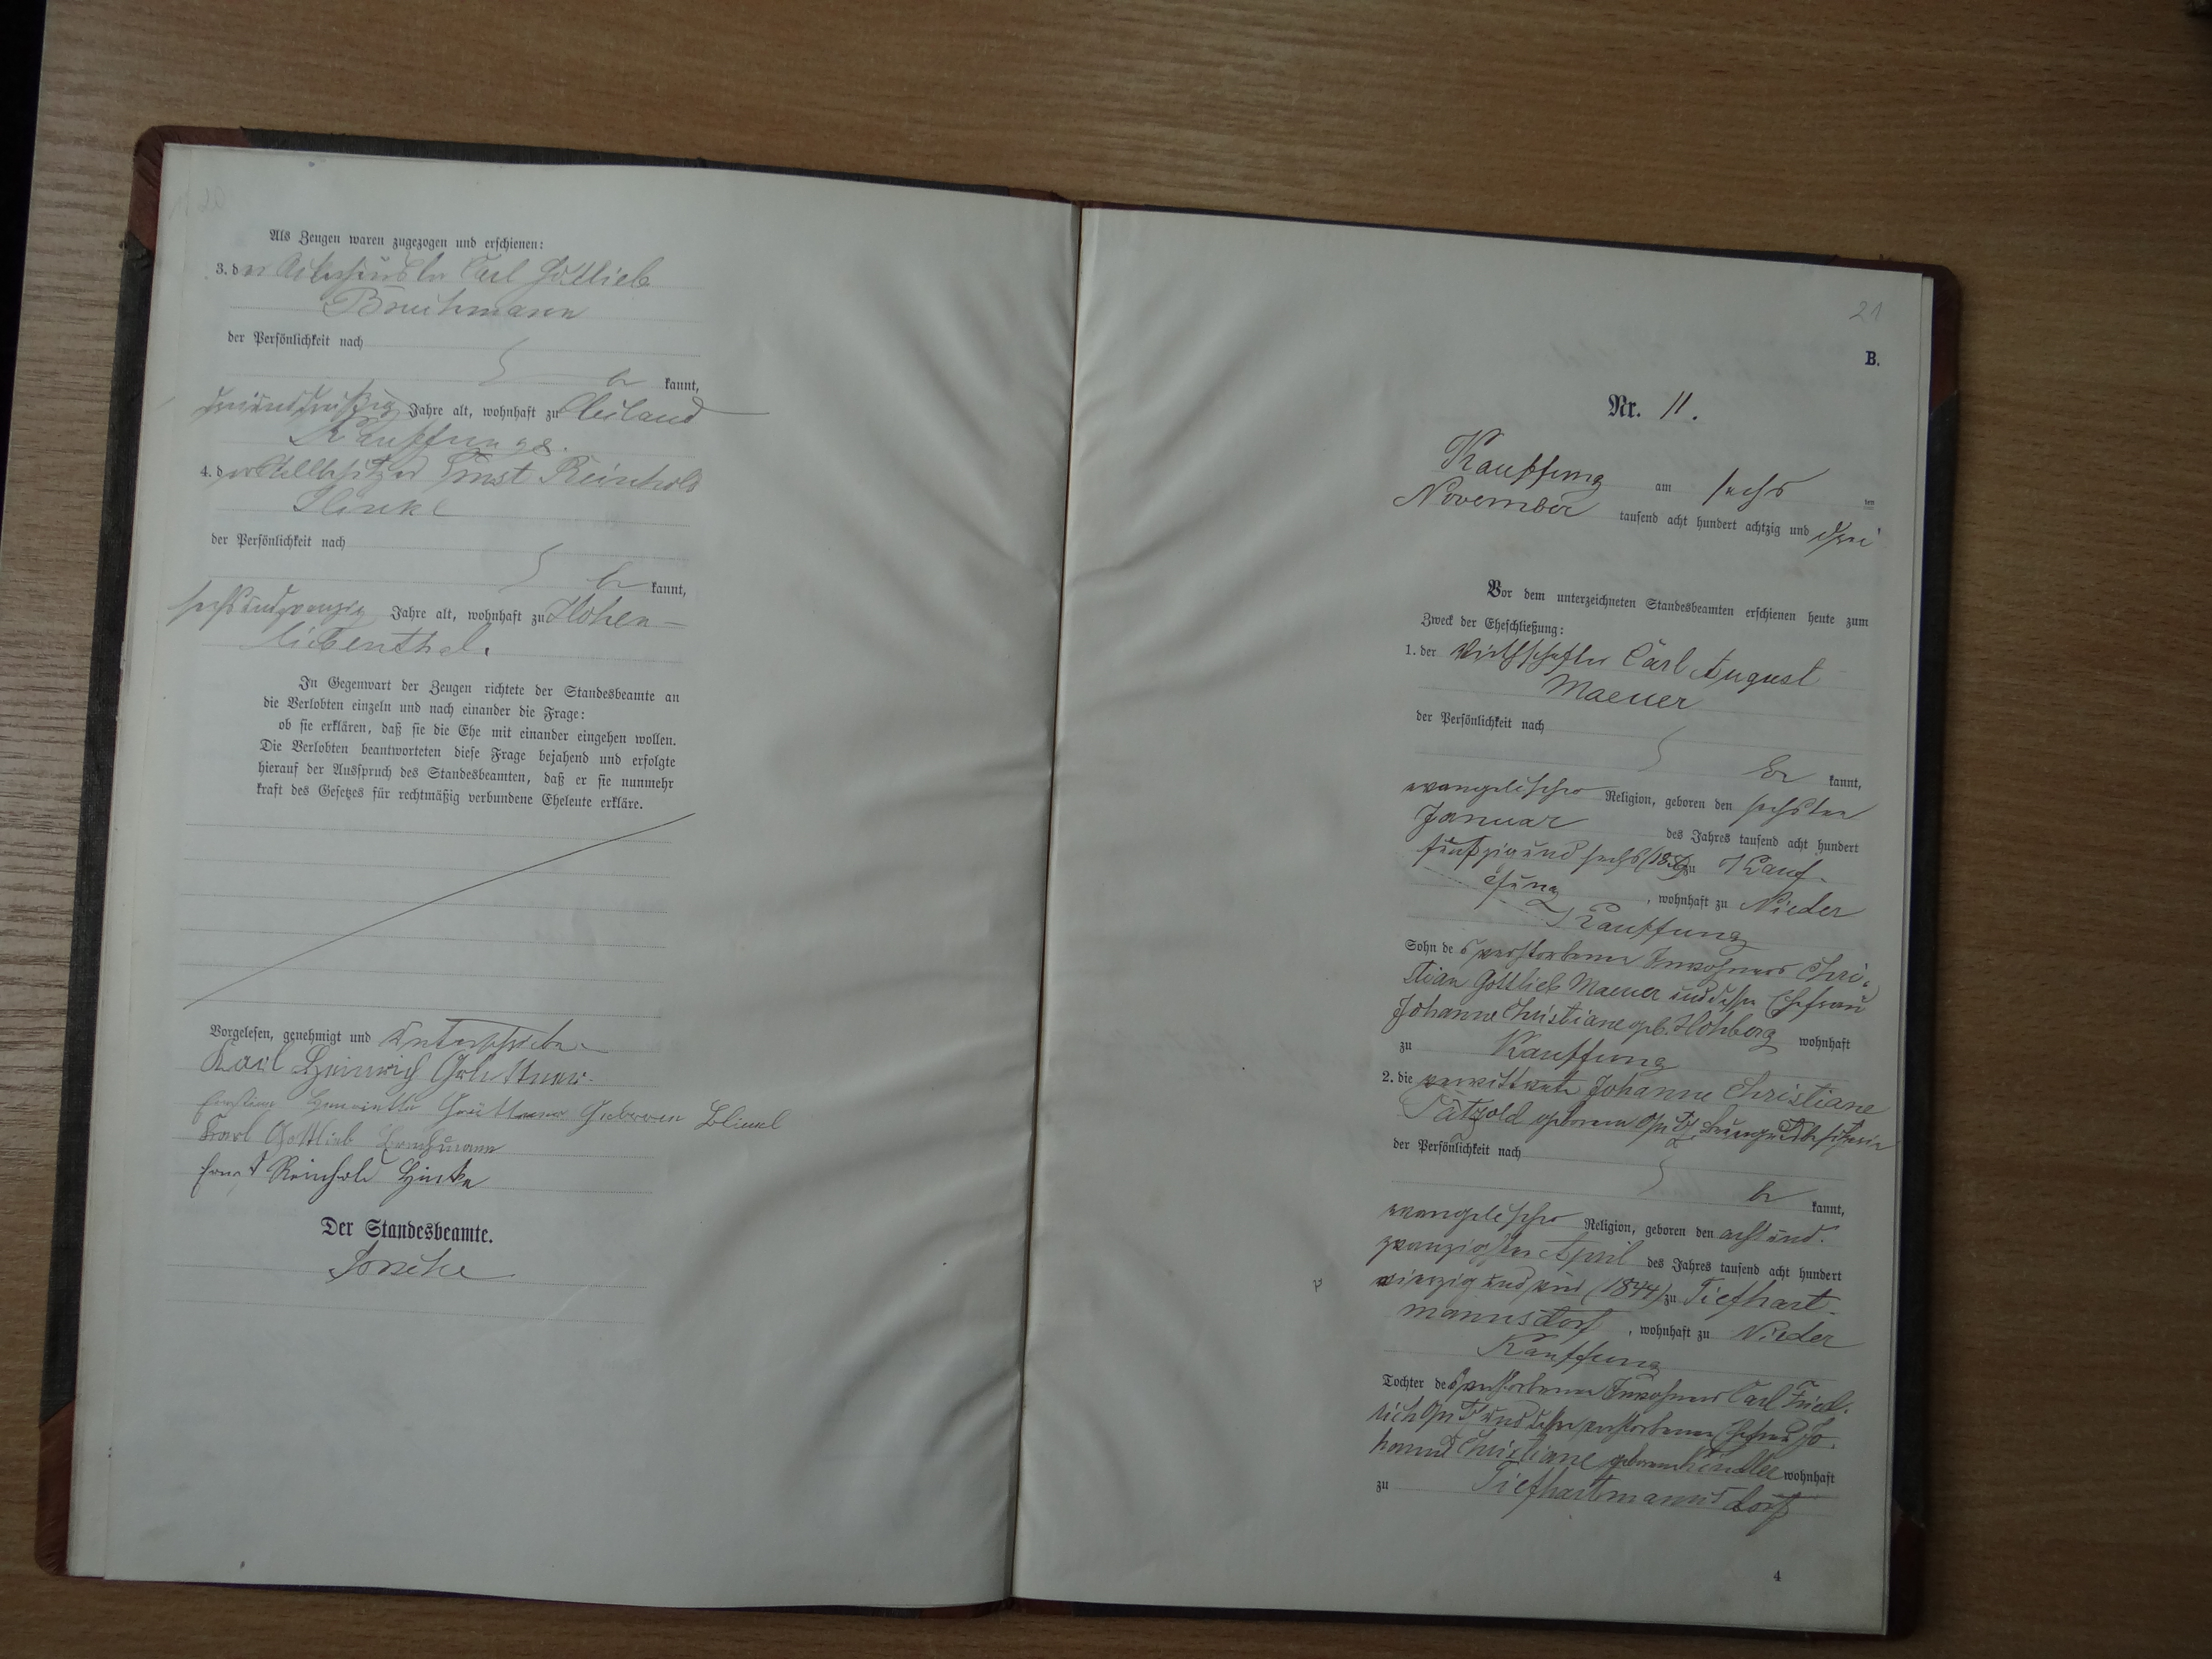 Als Zeugen waren zugezogen und erschienen:
3. der Carl Gottlieb
Bruchmann
der Persönlichkeit nach
be kannt,
dreiunddreißig Jahre alt, wohnhaft zu Elbiland
Kauffungs.
4. der Stellbesitzer Ernst Reinhold
Hinke
der Persönlichkeit nach
be kannt,
sechsundzwanzig Jahre alt, wohnhaft zu Hohen-
liebenthal.
In Gegenwart der Zeugen richtete der Standesbeamte an
die Verlobten einzeln und nach einander die Frage:
ob sie erklären, daß sie die Ehe mit einander eingehen wollen.
Die Verlobten beantworteten diese Frage bejahend und erfolgte
hierauf der Ausspruch des Standesbeamten, daß er sie nunmehr
kraft des Gesetzes für rechtmäßig verbundene Eheleute erkläre.
Vorgelesen, genehmigt und unterschrieben
Karl Heinrich
Geboren
Karl Gottlieb Bruchmann
Ernst Reinhold Hinke
Der Standesbeamte.
21
B.
Nr. 11.
Kauffung am sechs ten
November tausend acht hundert achtzig und drei
Vor dem unterzeichneten Standesbeamten erschienen heute zum
Zweck der Eheschließung:
1. der Wirthschafter Carl August
Maeuer
der Persönlichkeit nach
be kannt,
evangelischer Religion, geboren den sechsten
Januar des Jahres tausend acht hundert
fünfzig und sechs (1856) zu Kauf-
fung, wohnhaft zu Nieder
Kauffung
Sohn des verstorbenen Inwohners Chri-
stian Gottlieb Maeuer und dessen Ehefrau
Johanne Christiane geb. Hohberg wohnhaft
zu Kauffung
2. die verwittwete Johanne Christiane
Pätzold geborene
der Persönlichkeit nach
be kannt,
evangelischer Religion, geboren den acht und
zwanzigsten April des Jahres tausend acht hundert
vierzig und vier (1844) zu Tiefhart-
mannsdorf, wohnhaft zu Nieder
Kauffung
Tochter des verstorbenen Inwohners Carl Fried-
rich und dessen verstorbenen Ehefrau Jo-
hanne Christiane geborene Kindler wohnhaft
zu Tiefhartmannsdorf
4